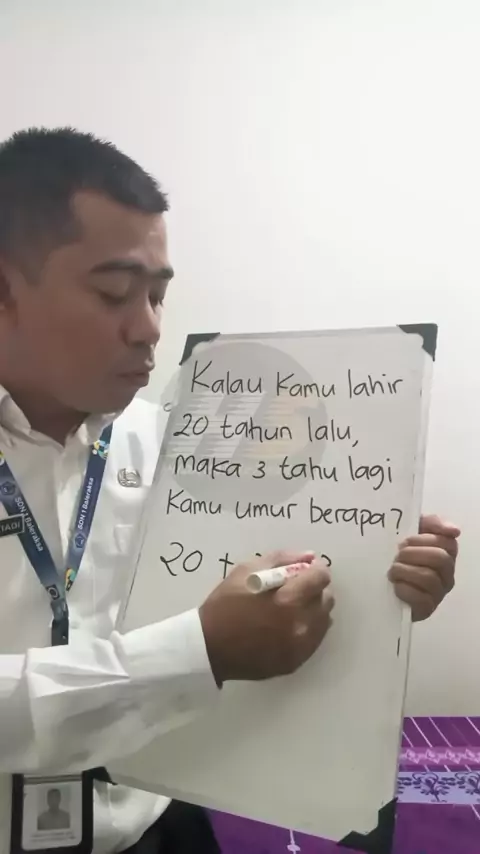 Kalau Kamu lahir
20 tahun lalu,
maka 3 tahu lagi
Kamu umur berapa?
20 +
SDN 1 Baleraksa
IADI